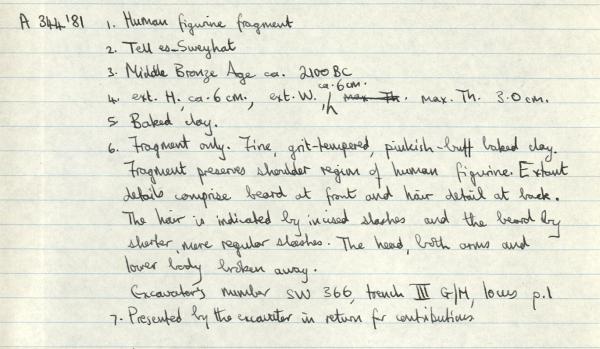 A 344'81 1. Human figurine fragment
2. Tell es-Sweyhat
3. Middle Bronze Age ca. 2100 BC
4. ext. H. ca. 6 cm., ext. W. ca. 6 cm. max. Th. max. Th. 3.0 cm.
5. Baked clay.
6. Fragment only. Fine, grit-tempered, pinkish-buff baked clay.
Fragment preserves shoulder region of human figurine. Extant
details comprise beard at front and hair detail at back.
The hair is indicated by incised slashes and the beard by
shorter, more regular slashes. The head, both arms and
lower body broken away.
Excavator's number SW 366, trench III G/H, locus p.1
7. Presented by the excavator in return for contributions